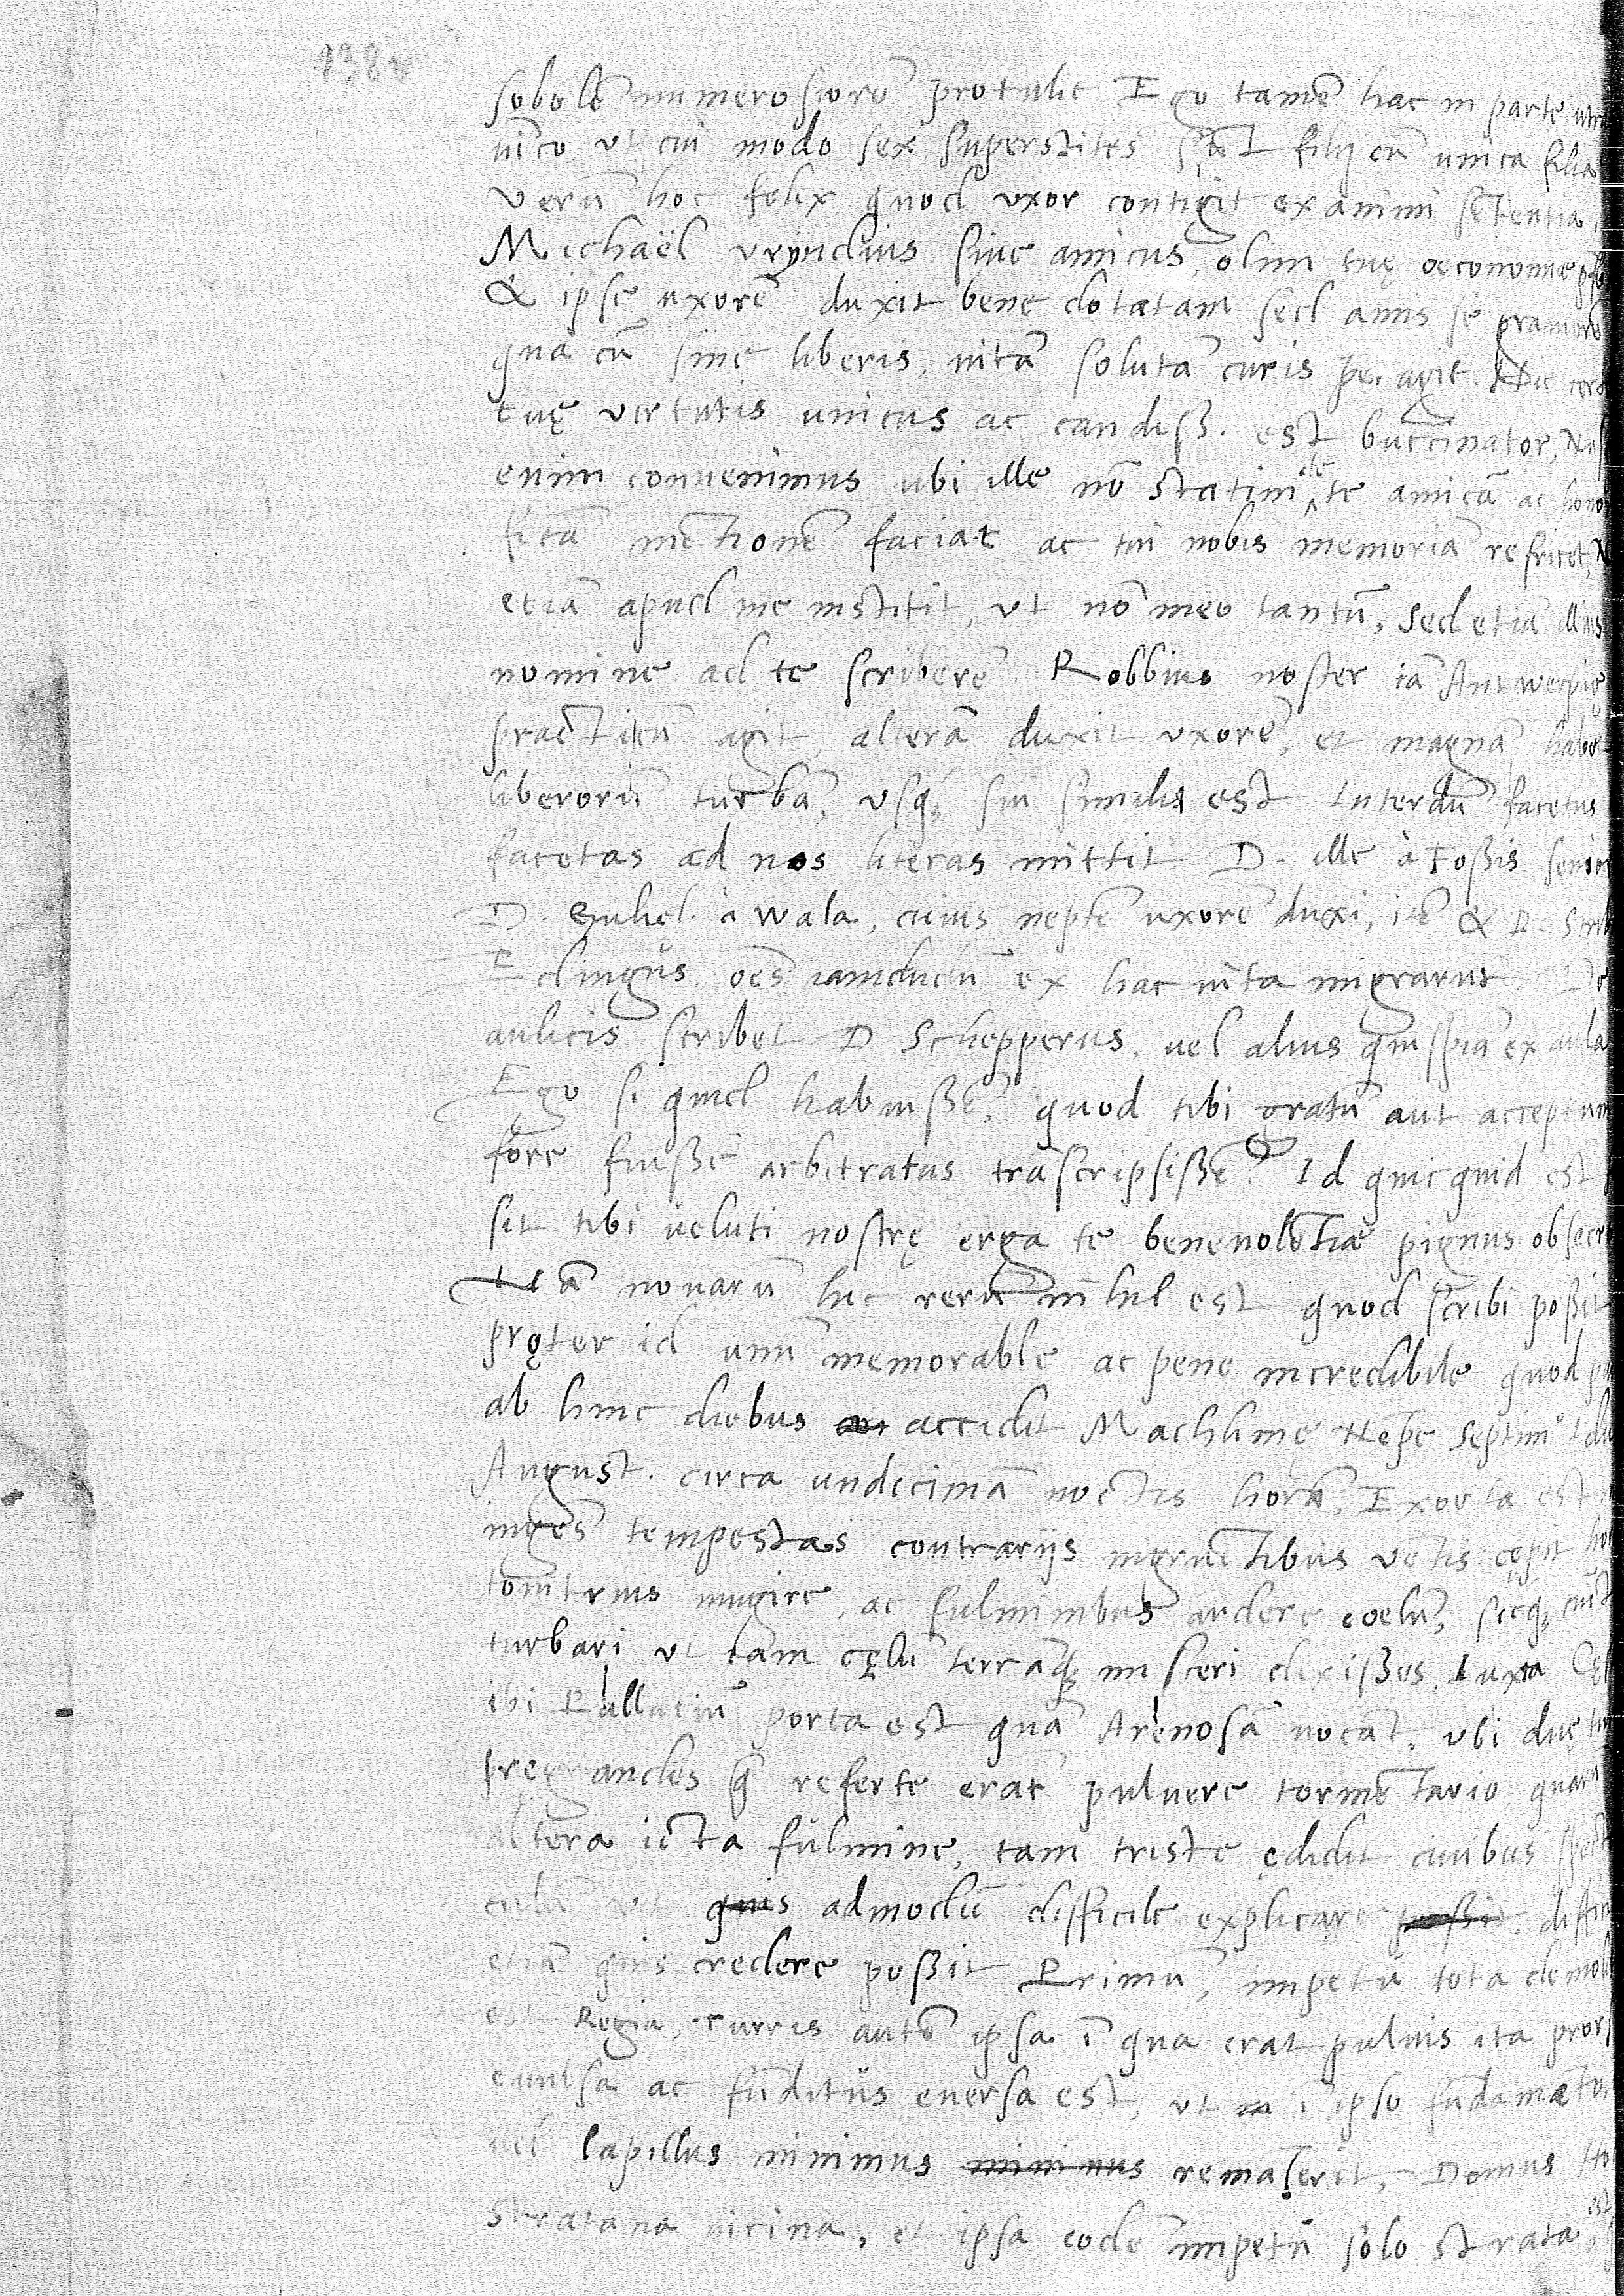 138v
sobolē numerosiorē protulit Ego tamē hac in parte
vīco ut cui modo sex superstites sūt filij cū unica filia
Verū hoc felix quod uxor contigit ex animi sētentia,
Michaël vrÿndius sive amicus, olim tuę oeconomiæ
& ipse uxorē duxit bene dotatam sed annis se
qua cū sine liberis, vitā solutā curis peragit. Hic
tuę virtutis unicus ac candiss. est buccinator,
enim convenimus ubi ille nō statim de te amicā ac hono
ficā mētionē faciat ac tui nobis memoriā refricet,
etiā apud me institit, ut nō meo tantū, sed etiā illius
nomine ad te scriberē. Robbius noster iā Antwerpię
practicū agit, alterā duxit uxorē, et magnā habet
liberorū turbā, usq; sui similis est Interdū facetus
facetas ad nos literas mittit. D. ille à Foßis senior
D. Guliel. à Wala, cuius neptē uxorē duxi, itē & D.
Edingus oēs iamdudū ex hac vita migrarūt De
aulicis scribet D Schepperus, vel alius quispiā ex aula
Ego si quid habuissē, quod tibi gratū aut acceptum
fore fuissē arbitratus trāscripsissē. Id quicquid est
sit tibi veluti nostrę erga te benevolētiæ pignus obsecro
Nā novarū hic rerū nihil est quod scribi possit
pręter id unū memorable ac pene incredibile quod
ab hinc diebus accidit Machlinię Nēpe septimo Idu
August. circa undecimā noctis horā, Exorta est
ingēs tempestas contrariis ingruētibus vētis: cępit
tonitruis mugire, ac fulminibus ardere coelū, sicq;
turbari ut iam cęlū terrāq; misceri dixisses, Iuxta
ibi Pallatiū porta est quā Arenosā vocāt. ubi duę
pręgrandes q̄ referte erāt pulvere tormētario, quarū
altera icta fulmine, tam triste ędidit civibus
culū ut quis admodū difficile explicare possit,
etiā quis credere possit Primū, impetu tota
est Regia, turris autē ipsa ī qua erat pulvis ita
evulsa ac fūditus eversa est, ut ī ipso fūdamēto,
vel lapillus minimus minimus remāserit, Domus
stratana vicina, et ipsa eodē impetu solo strata est